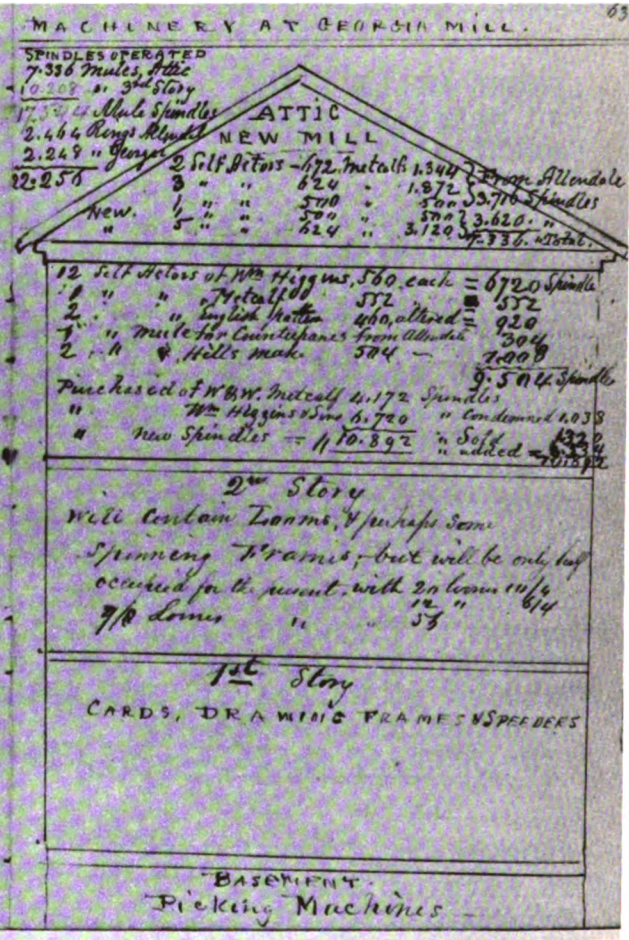 63
MACHINERY AT GEORGIA MILL.
SPINDLES OPERATED
7.336 Mules, Attic
10.208 " 3rd Story
Mule Spindles
2.464 Rings Allendale
2.248 " Georgia
22.256
ATTIC
NEW MILL
2 Self Actors – 672, Metcalfs 1.344
3 " " 624 " 1.872
1 " " 500 " 500
New. 1 " " 500 " 500
" 5 " " 624 " 3.120
From Allendale
3.716 Spindles
3.620 " "
7.336 " Total.
12 Self Actors of Wm Higgins, 560 each = 6720 Spindles
1 " " " Metcalf 552 = 552
2 " " English pattern 460, altered = 920
1 " Mule for Counterpanes from Allendale 304
2 " " Hills make 504 – 1.008
9.504 Spindles
Purchased of W & W. Metcalf 4.172 Spindles
" Wm Higgins & Sons 6.720 " Condemned 1.038
" New Spindles = " 10.892 " Sold 1320
" added =
2nd Story
Will Contain Looms, & perhaps some
Spinning Frames, – but will be only half
occupied for the present, with 20 looms 10/4
12 " 8/4
7/8 Looms " 56
1st Story
CARDS, DRAWING FRAMES & SPEEDERS
BASEMENT.
Picking Machines